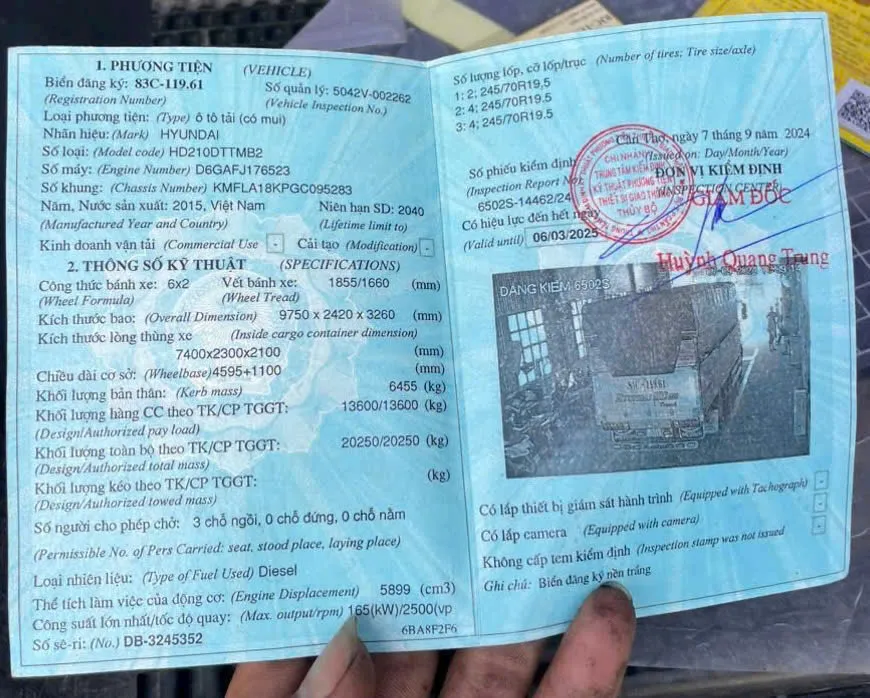 1. PHƯƠNG TIỆN (VEHICLE)
Biển đăng ký: 83C-119.61 Số quản lý: 5042V-002262
(Registration Number) (Vehicle Inspection No.)
Loại phương tiện: (Type) ô tô tải (có mui)
Nhãn hiệu: (Mark) HYUNDAI
Số loại: (Model code) HD210DTTMB2
Số máy: (Engine Number) D6GAFJ176523
Số khung: (Chassis Number) KMFLA18KPGC095283
Năm, Nước sản xuất: 2015, Việt Nam Niên hạn SD: 2040
(Manufactured Year and Country) (Lifetime limit to)
Kinh doanh vận tải (Commercial Use - Cải tạo (Modification) -
2. THÔNG SỐ KỸ THUẬT (SPECIFICATIONS)
Công thức bánh xe: 6x2 Vết bánh xe: 1855/1660 (mm)
(Wheel Formula) (Wheel Tread)
Kích thước bao: (Overall Dimension) 9750 x 2420 x 3260 (mm)
Kích thước lòng thùng xe (Inside cargo container dimension)
7400x2300x2100 (mm)
Chiều dài cơ sở: (Wheelbase) 4595+1100 (mm)
Khối lượng bản thân: (Kerb mass) 6455 (kg)
Khối lượng hàng CC theo TK/CP TGGT: 13600/13600 (kg)
(Design/Authorized pay load)
Khối lượng toàn bộ theo TK/CP TGGT: 20250/20250 (kg)
(Design/Authorized total mass)
Khối lượng kéo theo TK/CP TGGT: (kg)
(Design/Authorized towed mass)
Số người cho phép chở: 3 chỗ ngồi, 0 chỗ đứng, 0 chỗ nằm
(Permissible No. of Pers Carried: seat, stood place, laying place)
Loại nhiên liệu: (Type of Fuel Used) Diesel
Thể tích làm việc của động cơ: (Engine Displacement) 5899 (cm3)
Công suất lớn nhất/tốc độ quay: (Max. output/rpm) 165(kW)/2500(vp
6BA8F2F6
Số sê-ri: (No.) DB-3245352
Số lượng lốp, cỡ lốp/trục (Number of tires; Tire size/axle)
1: 2; 245/70R19,5
2: 4; 245/70R19.5
3: 4; 245/70R19.5
Cần Thơ, ngày 7 tháng 9 năm 2024
(Issued on: Day/Month/Year)
Số phiếu kiểm định ĐƠN VỊ KIỂM ĐỊNH
(Inspection Report No (INSPECTION CENTER)
6502S-14462/24 GIÁM ĐỐC
Có hiệu lực đến hết ngày
(Valid until) 06/03/2025
CHI NHÁNH
TRUNG TÂM KIỂM ĐỊNH
KỸ THUẬT PHƯƠNG TIỆN
THIẾT BỊ GIAO THÔNG
THỦY BỘ
Huỳnh Quang Trung
ĐĂNG KIỂM 6502S
Có lắp thiết bị giám sát hành trình (Equipped with Tachograph) -
Có lắp camera (Equipped with camera) -
Không cấp tem kiểm định (Inspection stamp was not issued -
Ghi chú: Biển đăng ký nền trắng